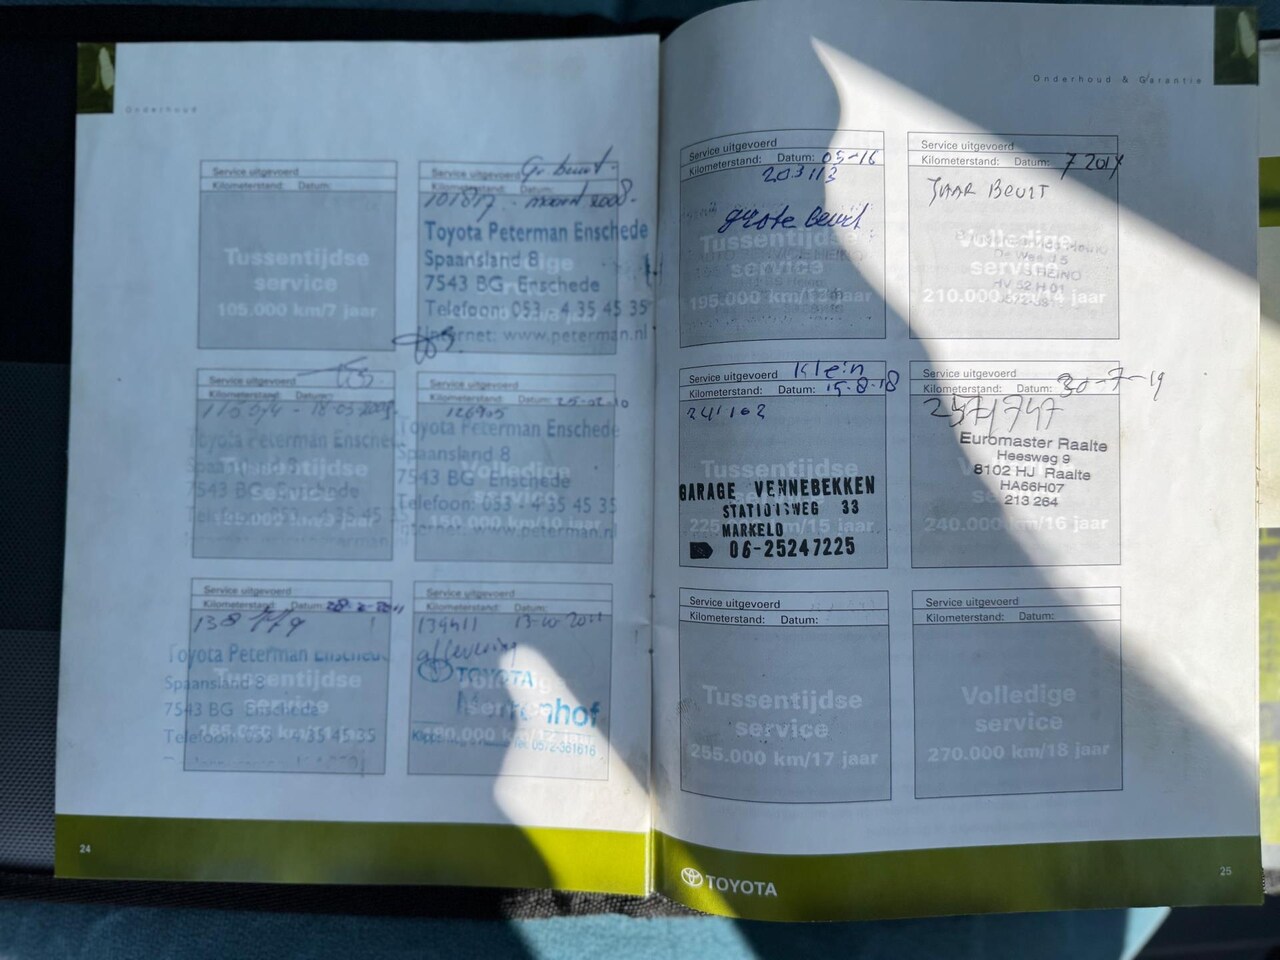 Onderhoud
Service uitgevoerd
Kilometerstand: Datum:
Tussentijdse
service
105.000 km/7 jaar
Service uitgevoerd Gr beurt
Kilometerstand: Datum:
101817 - maart 2008-
Toyota Peterman Enschede
Spaansland 8
7543 BG Enschede
Telefoon: 053 - 4 35 45 35
Internet: www.peterman.nl
Service uitgevoerd
Kilometerstand: Datum:
Toyota Peterman Enschede
Spaansland 8
7543 BG Enschede
Tussentijdse
service
Service uitgevoerd
Kilometerstand: Datum: 25-02-10
126905
Toyota Peterman Enschede
Spaansland 8
7543 BG Enschede
Telefoon: 053 - 4 35 45 35
Internet: www.peterman.nl
Volledige
service
150.000 km/10 jaar
Service uitgevoerd
Kilometerstand: Datum:
138779
Toyota Peterman Enschede
Spaansland 8
7543 BG Enschede
Tussentijdse
service
165.000 km/11 jaar
Service uitgevoerd
Kilometerstand: Datum:
13-10-2011
aflevering
TOYOTA
Tel. 0572-361616
24
Onderhoud & Garantie
Service uitgevoerd
Kilometerstand: Datum: 05-16
203113
grote beurt
Tussentijdse
service
195.000 km/13 jaar
Service uitgevoerd
Kilometerstand: Datum: 7 2017
JAAR BEURT
Volledige
service
210.000 km/14 jaar
Service uitgevoerd Klein
Kilometerstand: Datum: 15-8-18
241162
Tussentijdse
GARAGE VENNEBEKKEN
STATIONSWEG 33
MARKELO
06-25247225
225.000 km/15 jaar
Service uitgevoerd
Kilometerstand: Datum: 30-7-19
Euromaster Raalte
Heesweg 9
8102 HJ Raalte
HA66H07
213 264
240.000 km/16 jaar
Service uitgevoerd
Kilometerstand: Datum:
Tussentijdse
service
255.000 km/17 jaar
Service uitgevoerd
Kilometerstand: Datum:
Volledige
service
270.000 km/18 jaar
TOYOTA
25